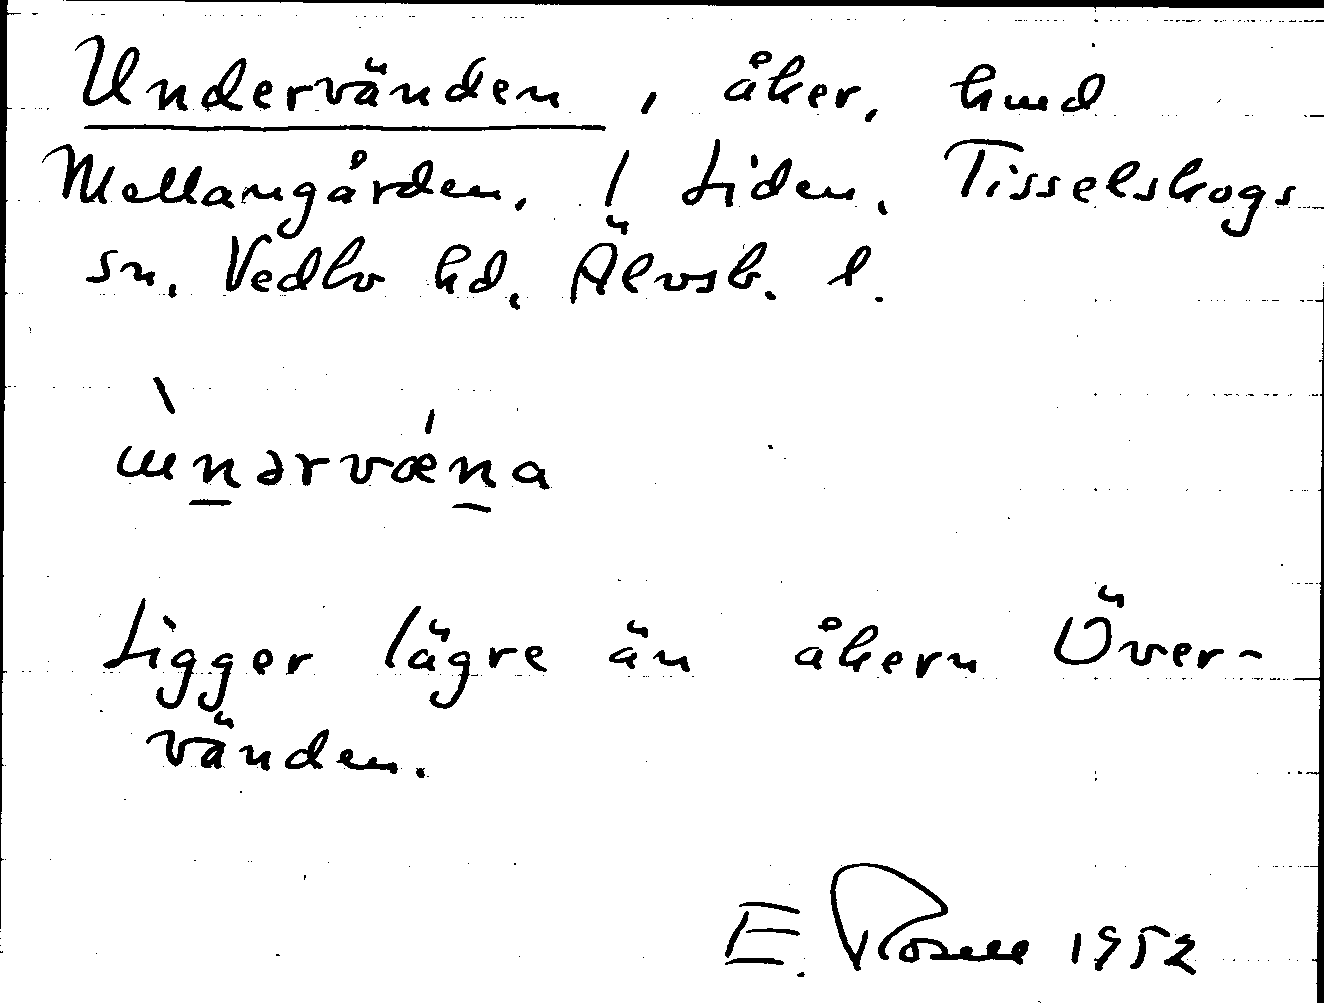 Undervänden, åker, hmd
Mellangården, 1 Liden, Tisselskogs
sn. Vedbo hd, Älvsb. l.
ɯ̀nərvǽna
Ligger lägre än åkern Över-
vänden.
E. Rosell 1952